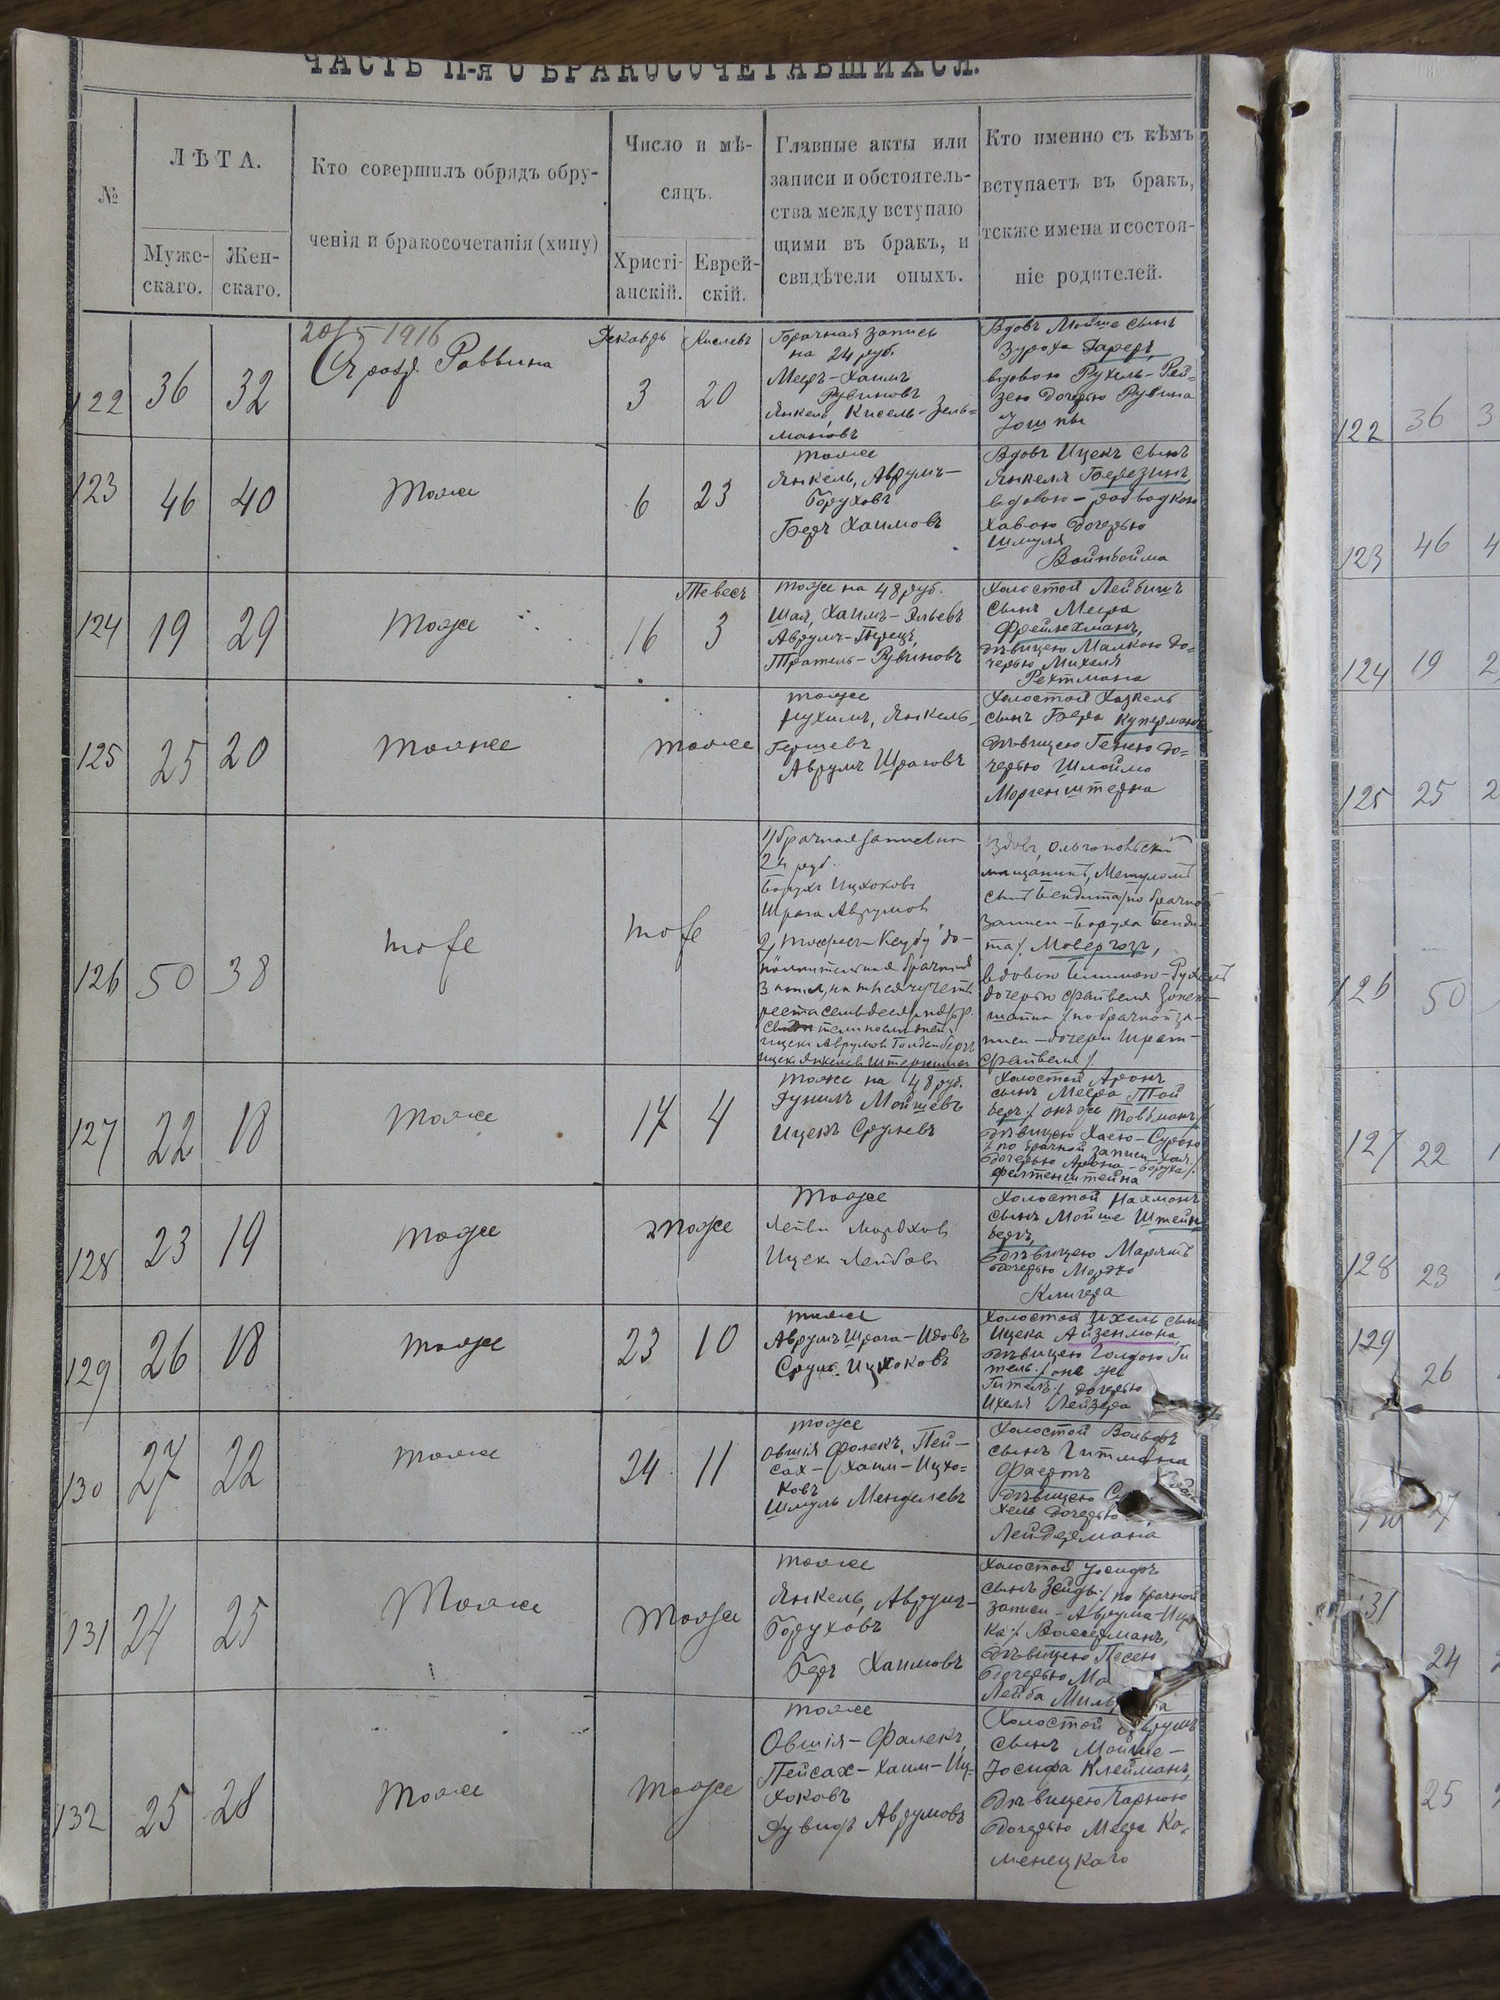 ЧАСТЬ II-я О БРАКОСОЧЕТАВШИХСЯ.
№
ЛѢТА.
Муже-
скаго.
Жен-
скаго.
Кто совершилъ обрядъ обру-
ченія и бракосочетанія (хипу)
Число и мѣ-
сяцъ.
Христі-
анскій.
Еврей-
скій.
Главные акты или
записи и обстоятель-
ства между вступаю
щими въ бракъ, и
свидѣтели оныхъ.
Кто именно съ кѣмъ
вступаетъ въ бракъ,
также имена и состоя-
ніе родителей.
1916
122
36
32
Раввина
Декабрь
3
Кислевъ
20
Брачная запись
на 24 руб.
Мееръ-Хаимъ
Рувиновъ
Янкель, Кисель-Зель=
мановъ
Вдовъ Мойше сынъ
вдовою Рухель-Рей=
зею дочерью Рувина
123
46
40
тоже
6
23
тоже
Янкель, Аврумъ-
Боруховъ
Беръ Хаимовъ
Вдовъ Ицекъ сынъ
Янкеля Березинъ
вдовою-разводкою
Хавою дочерью
Шмуля
Вайнбойма
124
19
29
тоже
16
Тевесъ
3
тоже на 48 руб.
Шая, Хаимъ-Эльевъ
Аврумъ-Герецъ,
Рувиновъ
Холостой Лейбишъ
сынъ Меера
Фрейлехманъ,
дѣвицею Малкою до=
черью Михеля
Рехтмана
125
25
20
тоже
тоже
тоже
Нухимъ, Янкель-
Гершевъ
Аврумъ Шраговъ
Холостой Хаскель
сынъ Бера Куперманъ
дѣвицею Генею до=
черью Шлойма
Моргенштерна
126
50
38
тоже
тоже
24 руб.
Борухъ Ицхоковъ
Шрага Аврумовъ
Вдовъ, Ольгопольскій
мѣщанинъ, Мешуломъ
записи-Боруха Бенди-
та/ Мовергозъ,
дочерью Файвеля
/по брачной за-
писи-дочери Шраги-
Файвеля/.
127
22
18
тоже
17
4
тоже на 48 руб.
Дунилъ Мойшевъ
Ицекъ Срулевъ
Холостой Аронъ
сынъ Меера Той
беръ/ онъ же Товбманъ/
дѣвицею Хаею-Сурою
/по брачной записи-Хая/.
дочерью Арона-Боруха/.
Фалтенштейна
128
23
19
тоже
тоже
тоже
Лейви Мордховъ
Ицекъ Лейбовъ
Холостой Нахманъ
сынъ Мойше Штейн
беръ,
дѣвицею Маріямъ
дочерью Мордко
Клигера
129
26
18
тоже
23
10
тоже
Аврумъ Шрага-Идовъ
Срулъ Ицхоковъ
Холостой Ихель сынъ
Ицека Айзенмана
дѣвицею Голдою Ги
тель./ она же
Гитель/ дочерью
Ихеля Лейзера
130
27
22
тоже
24
11
тоже
Овшія Фалекъ, Пей-
сах-Хаим-Ицхо=
ковъ
Шмуль Менделевъ
Холостой Вольфъ
сынъ Гитмана
дѣвицею
хель дочерью
Лейдермана
131
24
25
тоже
тоже
тоже
Янкель, Аврумъ-
Боруховъ
Беръ Хаимовъ
Холостой Іосифъ
сынъ Зейды/ по брачной
записи-Аврума-Ице
ка/ Вассерманъ,
дѣвицею Песею
дочерью
Лейба
132
25
28
тоже
тоже
тоже
Овшія-Фалекъ,
Пейсах-Хаим-Иц-
хоковъ
Дувидъ Аврумовъ
Холостой Аврумъ
сынъ Мойше-
Іосифа Клейманъ,
дѣвицею Чарною
дочерью Меера Ка-
менецкаго
122
36
3
123
46
4
124
19
2
125
25
2
126
50
127
22
1
128
23
129
26
27
131
24
25